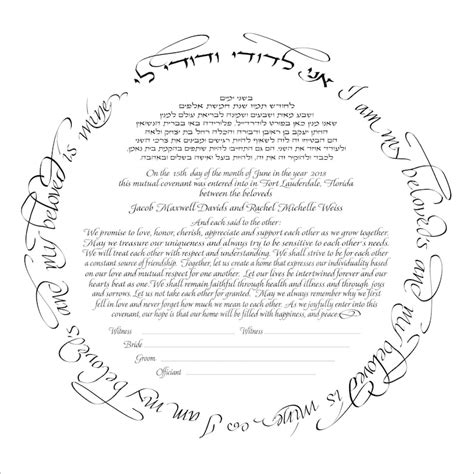 אני לדודי ודודי לי
I am my beloveds and my beloved is mine
I am my beloveds and my beloved is mine
בשני ימים
לחודש תמוז שנת חמשת אלפים
ושבע מאות ושבעים ושמונה לבריאת עולם למנין
כאן בפורט לודרדייל, פלורידה באו בברית הנשואין
החתן יעקב בן
On the 15th day of the month of June in the year 2018
this mutual covenant was entered into in Fort Lauderdale, Florida
between the beloveds
Jacob Maxwell Davids and Rachel Michelle Weiss
And each said to the other:
We promise to love, honor, cherish, appreciate and support each other as we grow together.
May we treasure our uniqueness and always try to be sensitive to each other's needs.
We will treat each other with respect and understanding. We shall strive to be for each other
a constant source of friendship. Together, let us create a home that expresses our individuality based
on our love and mutual respect for one another. Let our lives be intertwined forever and our
hearts beat as one. We shall remain faithful through health and illness and through joys
and sorrows. Let us not take each other for granted. May we always remember why we first
fell in love and never forget how much we mean to each other. As we joyfully enter into this
covenant, it is our hope that our home will be filled with happiness, and peace
Witness Witness
Bride
Groom
Officiant